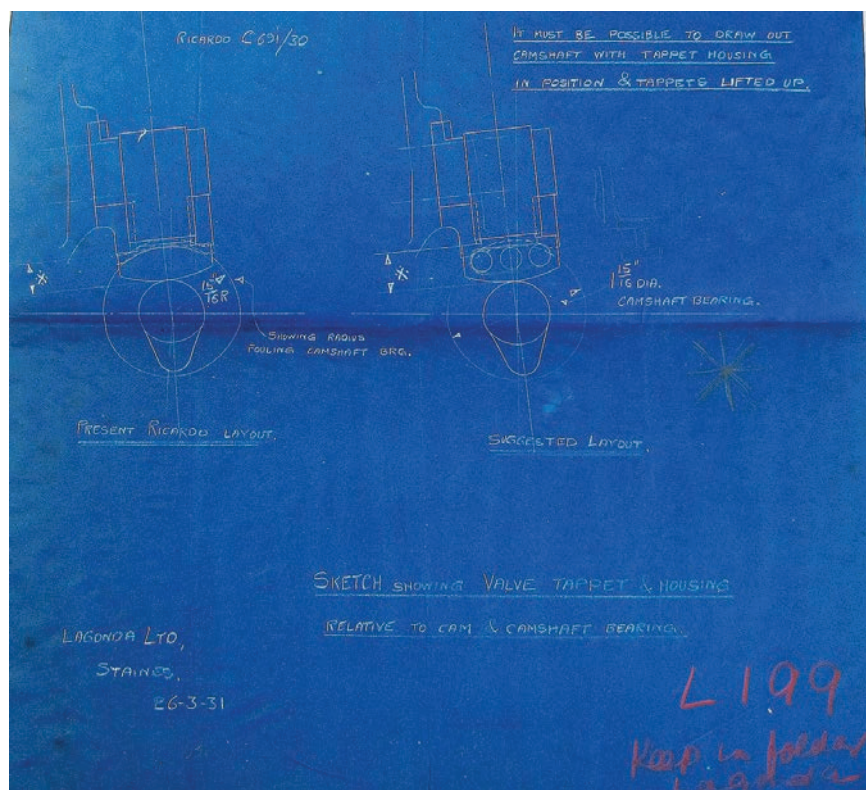 RICARDO C691/30
IT MUST BE POSSIBLE TO DRAW OUT
CAMSHAFT WITH TAPPET HOUSING
IN POSITION & TAPPETS LIFTED UP.
15/16 R
1 15/16" DIA.
CAMSHAFT BEARING.
SHOWING RADIUS
FOULING CAMSHAFT BRG.
PRESENT RICARDO LAYOUT.
SUGGESTED LAYOUT.
SKETCH SHOWING VALVE TAPPET & HOUSING
RELATIVE TO CAM & CAMSHAFT BEARING.
LAGONDA LTD,
STAINES.
26-3-31
L199
Keep in folder
Lagonda